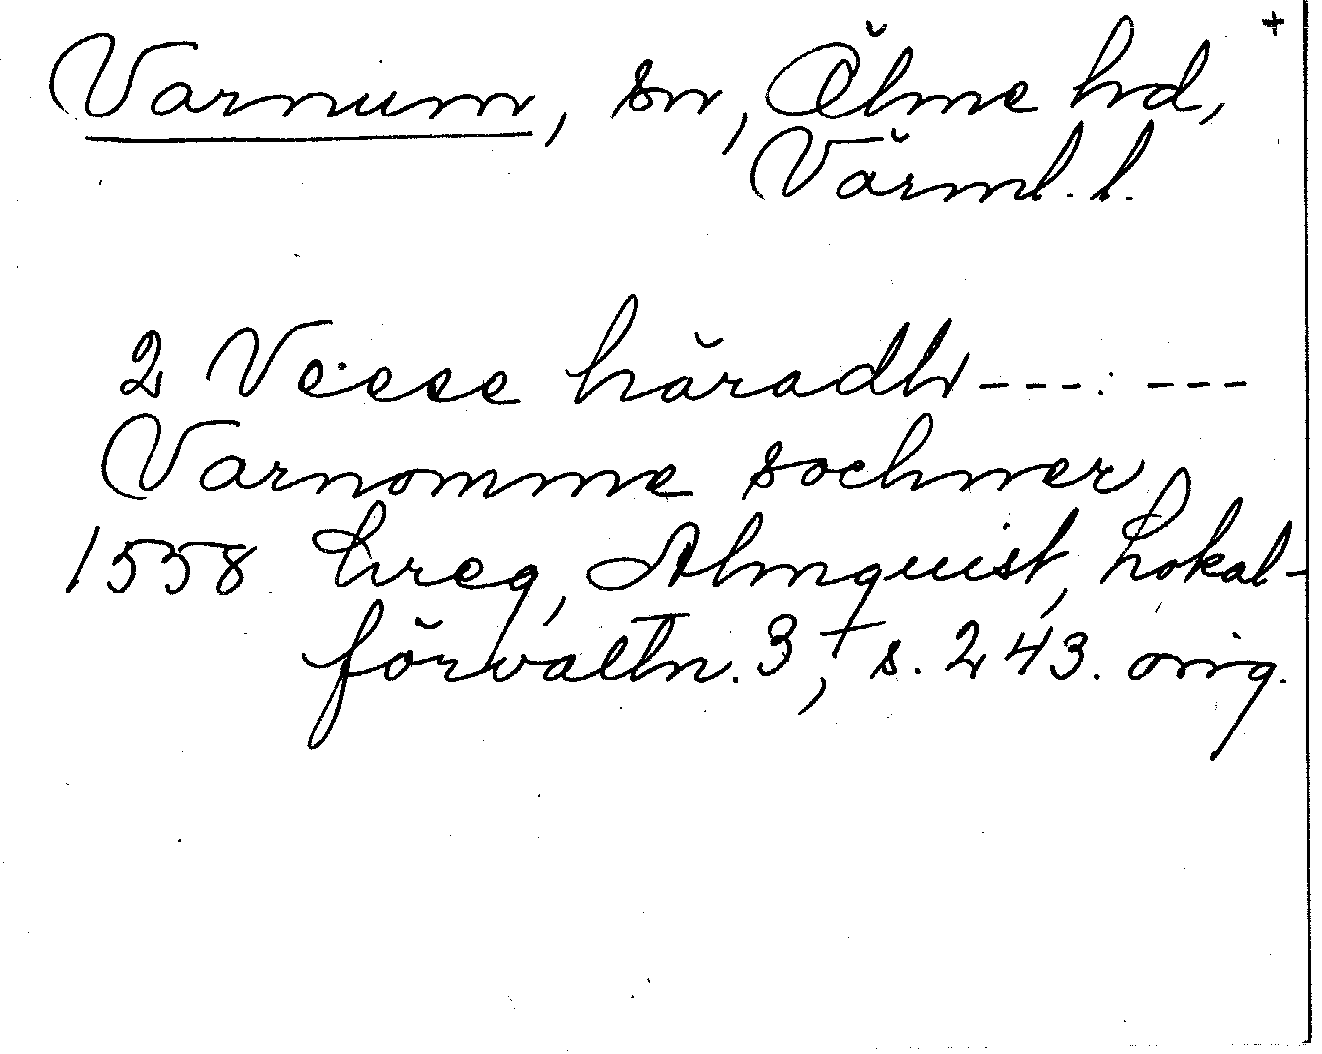 +
Varnum, sn, Ölme hd,
Värml. l.
2 Veese häradh---:---
Varnomme sochner
1558 hreg, Almquist, Lokal-
förvaltn. 3, + s. 243. orig.